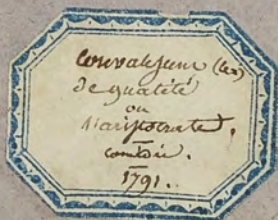 Convalescent (Le)
de qualité
ou
L'aristocrate.
comédie.
1791.